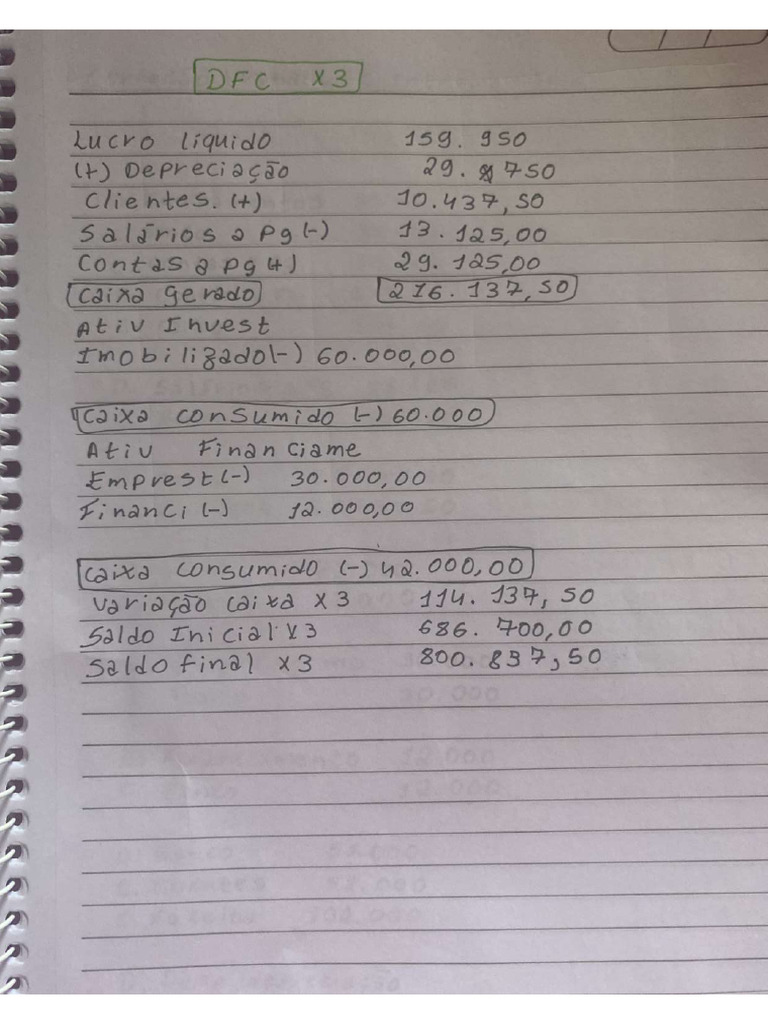 DFC X3
Lucro líquido 159.950
(+) Depreciação 29.750
Clientes. (+) 10.437,50
Salários a pg (-) 13.125,00
Contas a pg (+) 29.125,00
Caixa gerado 216.137,50
Ativ Invest
Imobilizado (-) 60.000,00
Caixa consumido (-) 60.000
Ativ Financiame
Emprest (-) 30.000,00
Financi (-) 12.000,00
Caixa consumido (-) 42.000,00
Variação Caixa X3 114.137,50
Saldo Inicial X3 686.700,00
Saldo final X3 800.837,50